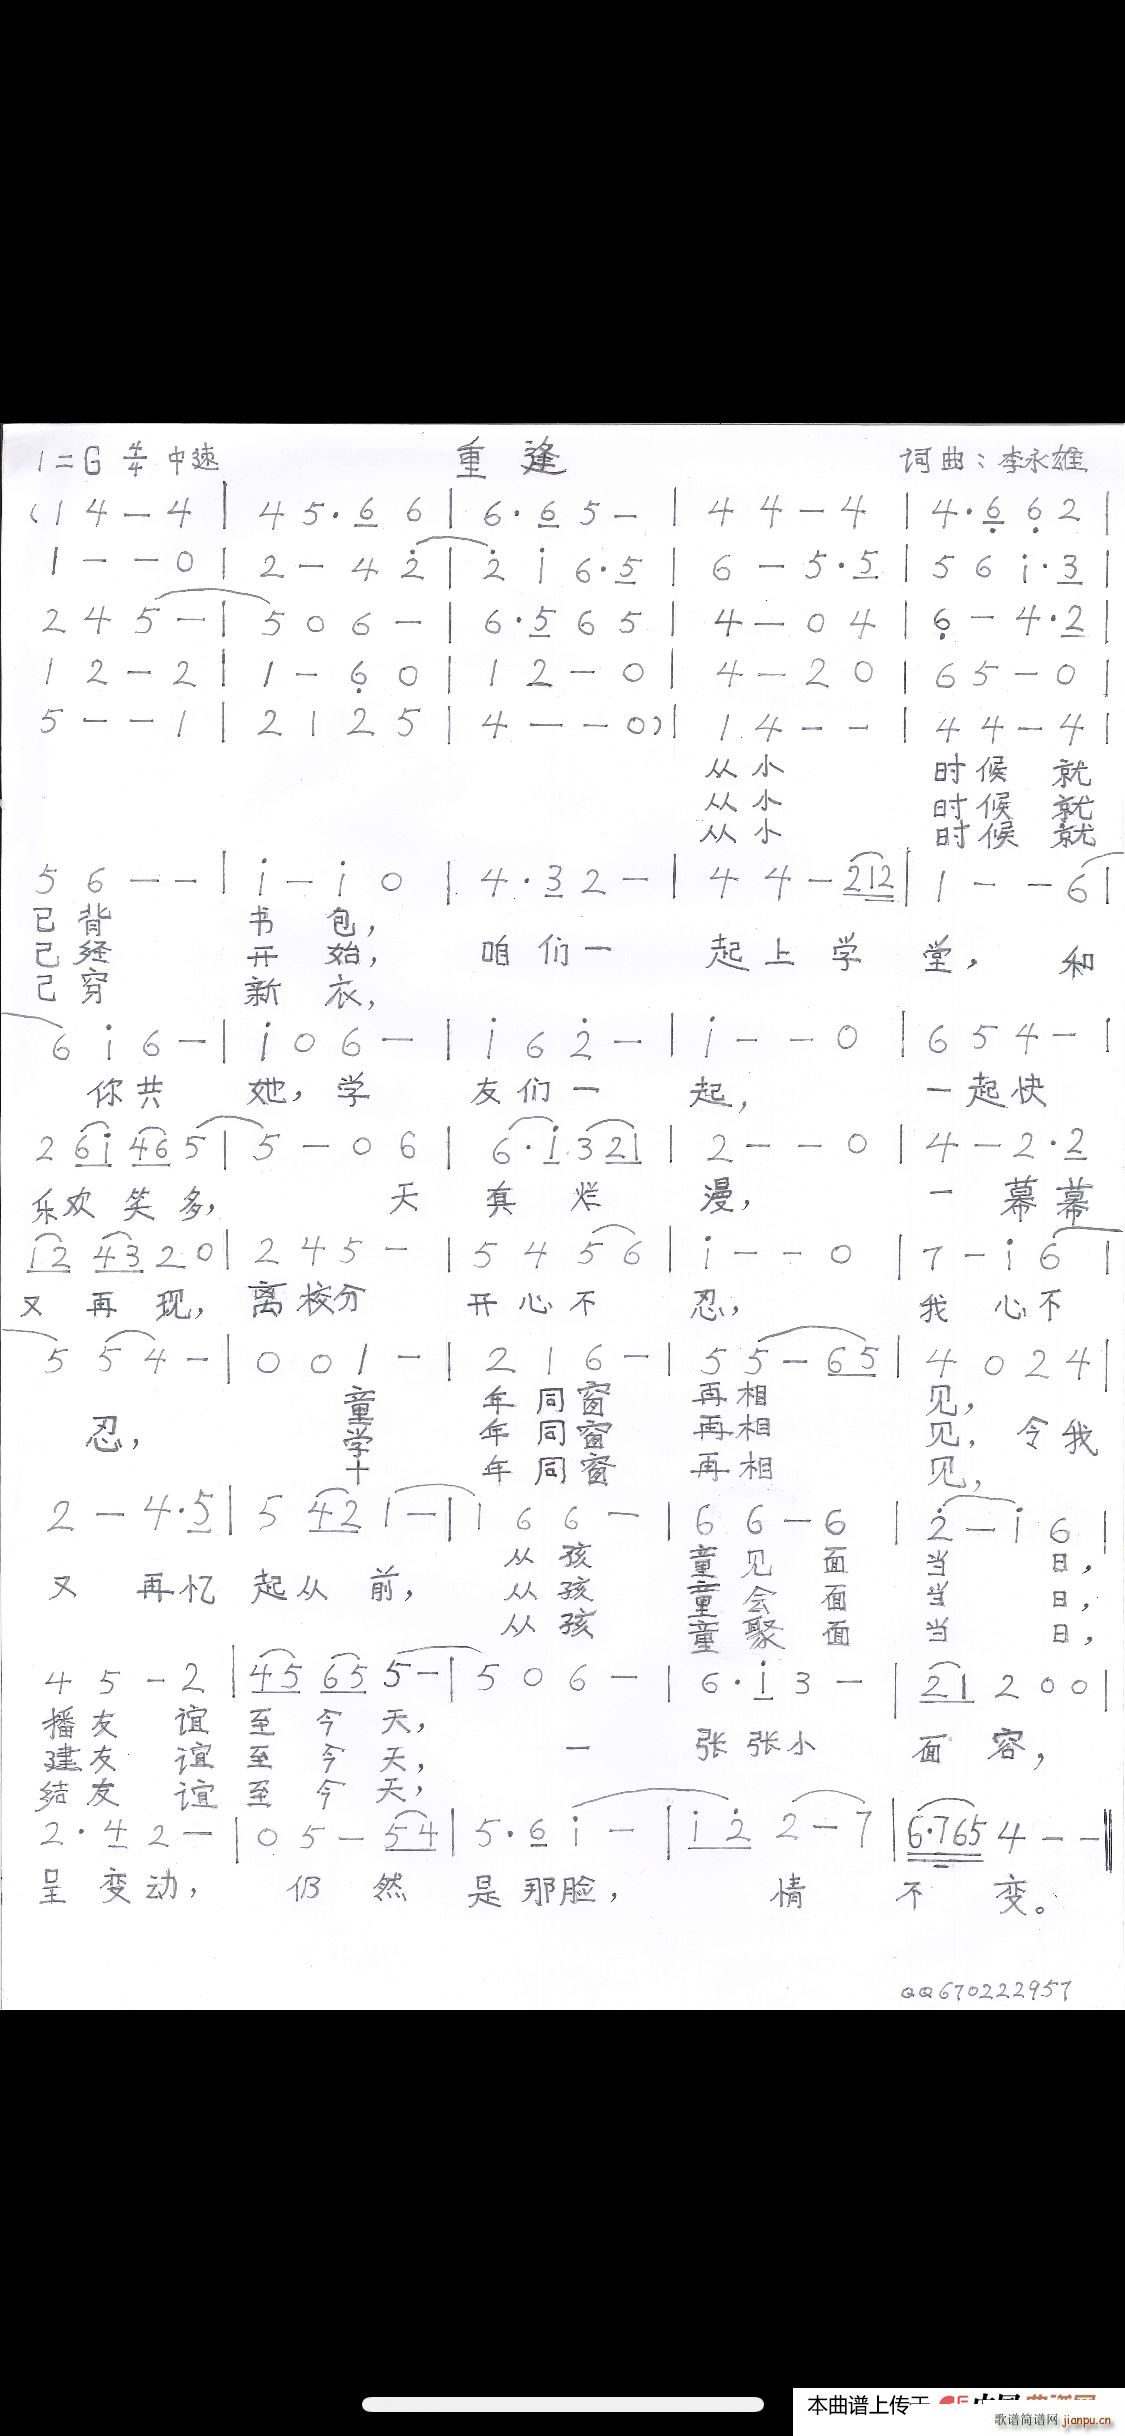 1=G 4/4 中速 重逢 词曲：李永雄
(1 4 — 4 | 4 5·6 6 | 6·6 5 — | 4 4 — 4 | 4·6 6 2 |
1 — — 0 | 2 — 4 2 | 2 1 6·5 | 6 — 5·5 | 5 6 1·3 |
2 4 5 — | 5 0 6 — | 6·5 6 5 | 4 — 0 4 | 6 — 4·2 |
1 2 — 2 | 1 — 6 0 | 1 2 — 0 | 4 — 2 0 | 6 5 — 0 |
5 — — 1 | 2 1 2 5 | 4 — — 0) | 1 4 — — | 4 4 — 4 |
从小 时候 就
从小 时候 就
从小 时候 就
5 6 — — | 1 — 1 0 | 4·3 2 — | 4 4 — 212 | 1 — — 6 |
已背 书 包，
已经 开 始， 咱们一 起上学 堂， 和
已穿 新 衣，
6 1 6 — | 1 0 6 — | 1 6 2 — | 1 — — 0 | 6 5 4 — |
你共 她，学 友们一 起， 一起快
2 61 46 5 | 5 — 0 6 | 6·1 3 21 | 2 — — 0 | 4 — 2·2
乐欢笑多， 天 真 烂 漫， 一 幕幕
12 43 2 0 | 2 4 5 — | 5 4 5 6 | 1 — — 0 | 7 — 1 6 |
又 再 现， 离校分 开心不 忍， 我 心不
5 5 4 — | 0 0 1 — | 2 1 6 — | 5 5 — 65 | 4 0 2 4 |
童 年同窗 再相 见，
忍， 学 年同窗 再相 见，令我
十 年同窗 再相 见，
2 — 4·5 | 5 42 1 — | 1 6 6 — | 6 6 — 6 | 2 — 1 6 |
从孩 童见面 当 日，
又 再忆 起从 前， 从孩 童会面 当 日，
从孩 童聚面 当 日，
4 5 — 2 | 45 65 5 — | 5 0 6 — | 6·1 3 — | 21 2 0 0 |
播友 谊 至 今 天，
建友 谊 至 今 天， 一 张张小 面 容，
结友 谊 至 今 天，
2·4 2 — | 0 5 — 54 | 5·6 1 — | 1 2 2 — 7 | 6·765 4 — — ‖
呈 变动， 仍 然 是那脸， 情 不 变。
QQ670222957
本曲谱上传于
歌谱简谱网 jianpu.cn